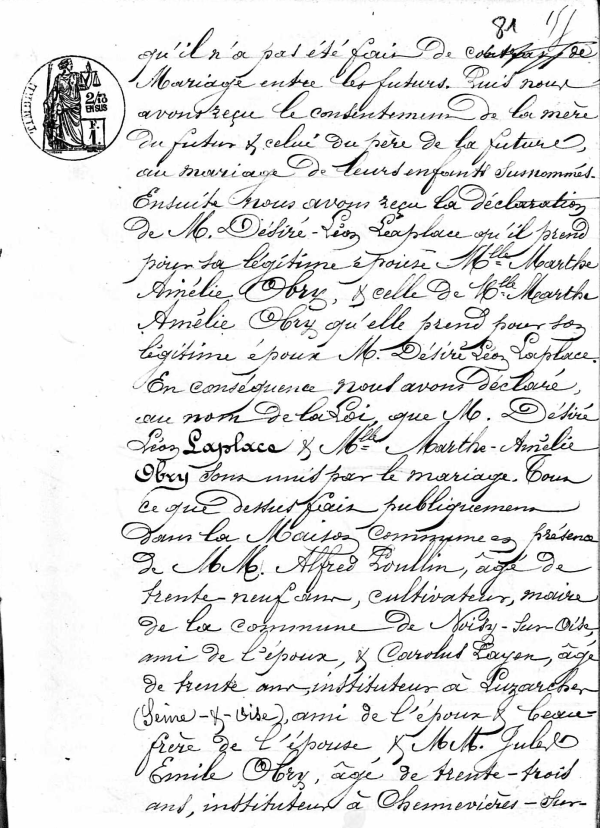 81
TIMBRE
2/10
EN SUS
F.
1.
qu'il n'a pas été fait de contrat de
Mariage entre les futurs. Puis nous
avons reçu le consentement de la mère
du futur & celui du père de la future,
au mariage de leurs enfants susnommés.
Ensuite nous avons reçu la déclaration
de M. Désiré-Léon Laplace qu'il prend
pour sa légitime épouse Mlle Marthe
Amélie Obry, & celle de Mlle Marthe
Amélie Obry qu'elle prend pour son
légitime époux M. Désiré Léon Laplace.
En conséquence nous avons déclaré,
au nom de la Loi, que M. Désiré
Léon Laplace & Mlle Marthe-Amélie
Obry sont unis par le mariage. Tout
ce que dessus fait publiquement
dans la Maison commune en présence
de MM. Alfred Poullin, âgé de
trente neuf ans, cultivateur, maire
de la commune de Noisy-sur-Oise,
ami de l'époux, & Carolus Payen, âgé
de trente ans, instituteur à Luzarches
(Seine-&-Oise), ami de l'époux & beau-
frère de l'épouse & MM. Jules
Emile Obry, âgé de trente-trois
ans, instituteur à Chennevières-sur-